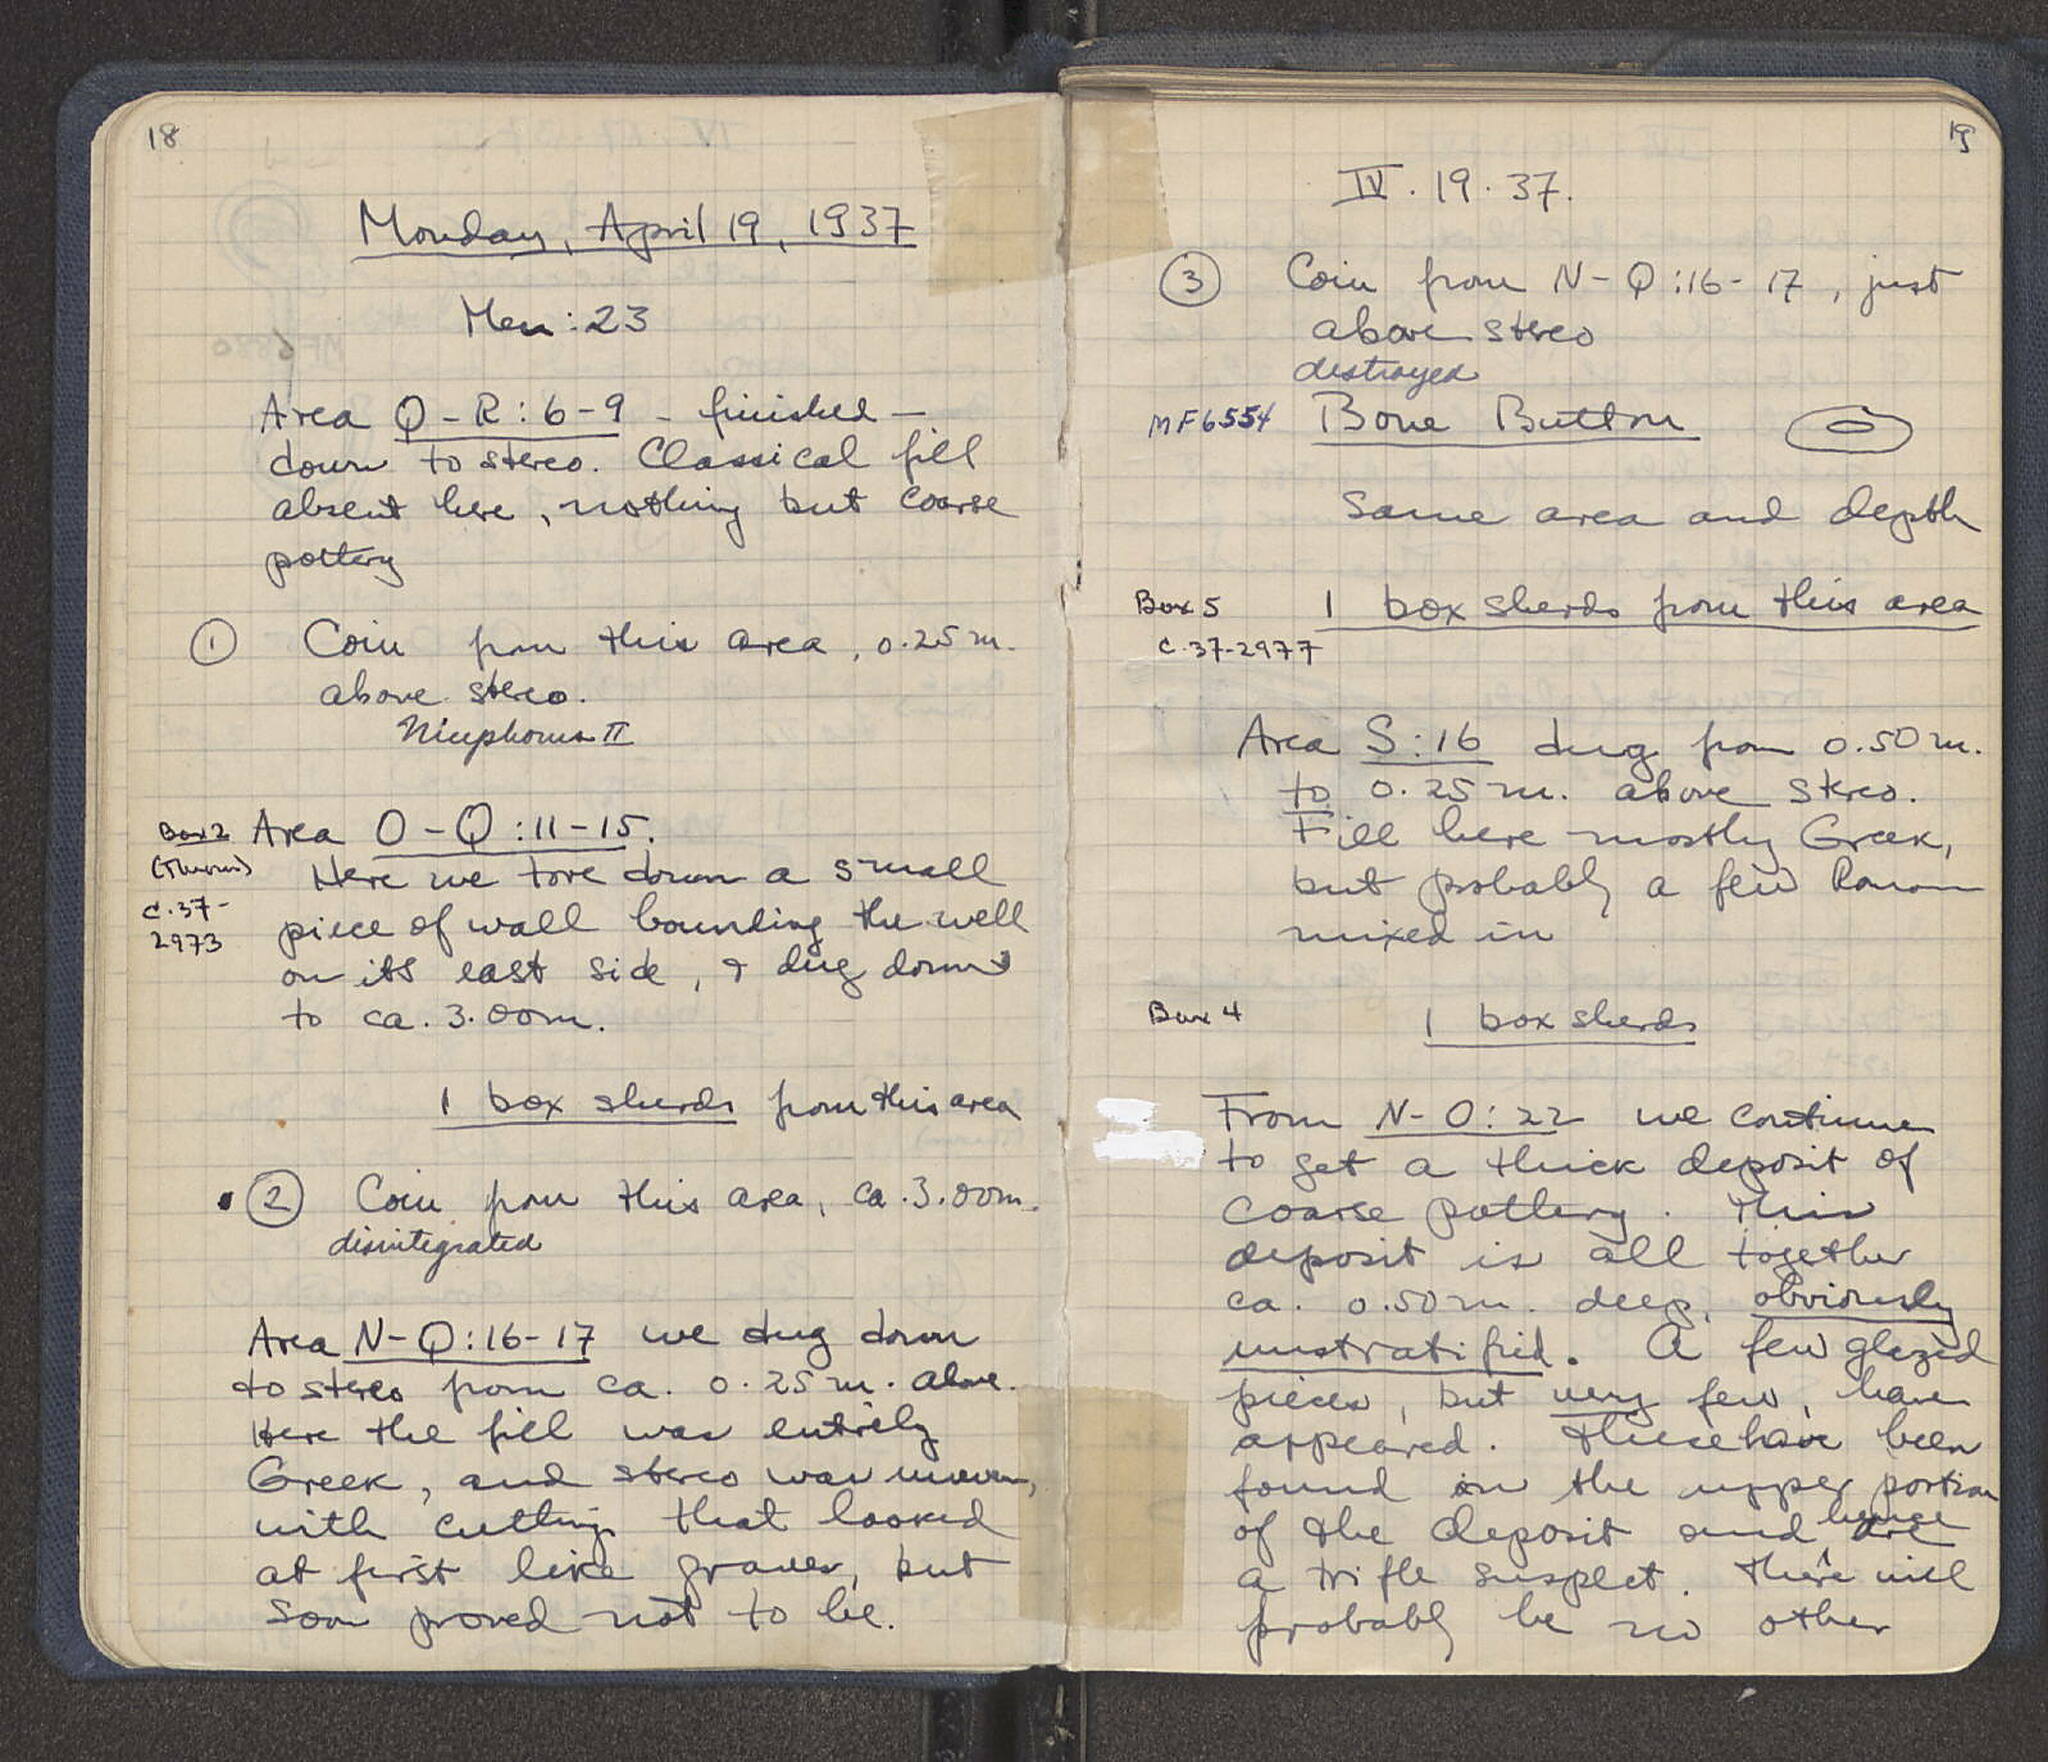 18
Monday, April 19, 1937
Men: 23
Area Q-R: 6-9 - finished -
down to stereo. Classical fill
absent here, nothing but coarse
pottery
1 Coin from this area, 0.25 m.
above stereo.
Nicephorus II
Box 2
(Thrown)
C.37-
2973
Area O-Q: 11-15.
Here we tore down a small
piece of wall bounding the well
on its east side, & dug down
to ca. 3.00m.
1 box sherds from this area
2 Coin from this area, ca. 3.00m.
disintegrated
Area N-Q: 16-17 we dug down
to stereo from ca. 0.25 m. above.
Here the fill was entirely
Greek, and stereo was uneven,
with cuttings that looked
at first like graves, but
soon proved not to be.
19
IV. 19. 37.
3 Coin from N-Q: 16-17, just
above stereo
destroyed
MF6554 Bone Button
Same area and depth
Box 5 1 box sherds from this area
C.37-2977
Area S: 16 dug from 0.50 m.
to 0.25 m. above stereo.
Fill here mostly Greek,
but probably a few Roman
mixed in
Box 4 1 box sherds
From N-O: 22 we continue
to get a thick deposit of
coarse pottery. This
deposit is all together
ca. 0.50 m. deep, obviously
unstratified. A few glazed
pieces, but very few, have
appeared. These have been
found in the upper portion
of the deposit and hence are
a trifle suspect. There will
probably be no other